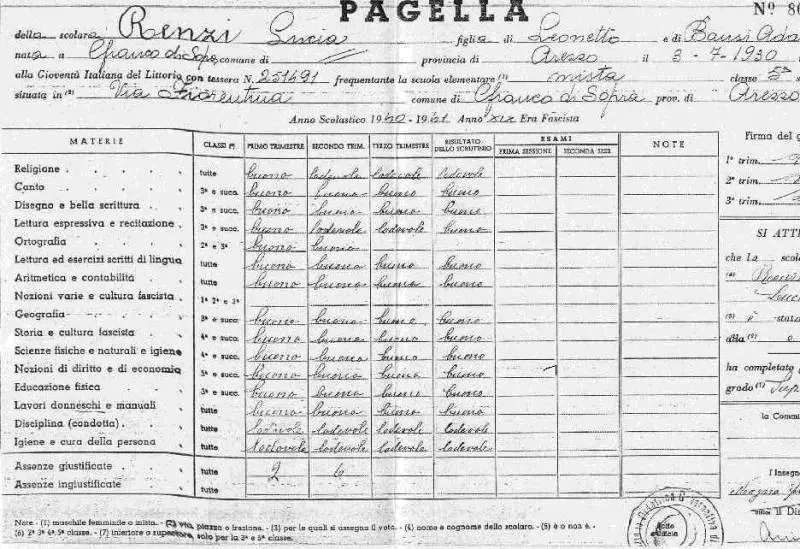 PAGELLA
Nº 80
della scolara Renzi Lucia figlia di Leonetto e di Bansi Ada
nata a Cfranco di Sopra comune di // provincia di Arezzo il 3-7-1930
alla Gioventù Italiana del Littorio con tessera N. 251491 frequentante la scuola elementare (1) mista classe 5ª
situata in (2) Via Fiorentina comune di Cfranco di Sopra prov. di Arezzo
Anno Scolastico 1940 - 1941 Anno XIX Era Fascista
MATERIE CLASSI (*) PRIMO TRIMESTRE SECONDO TRIM. TERZO TRIMESTRE RISULTATO DELLO SCRUTINIO ESAMI PRIMA SESSIONE SECONDA SESS. NOTE
Religione tutte buono lodevole lodevole lodevole
Canto 3ª e succ. buono buono buono buono
Disegno e bella scrittura 3ª e succ. buono buono buono buono
Lettura espressiva e recitazione 3ª e succ. buono lodevole lodevole buono
Ortografia 2ª e 3ª buono buono
Lettura ed esercizi scritti di lingua tutte buono buono buono buono
Aritmetica e contabilità tutte buono buono buono buono
Nozioni varie e cultura fascista 1ª 2ª e 3ª
Geografia 3ª e succ. buono buono buono buono
Storia e cultura fascista 4ª e succ. buono buono buono buono
Scienze fisiche e naturali e igiene 4ª e succ. buono buono buono buono
Nozioni di diritto e di economia 5ª e succ. buono buono buono buono
Educazione fisica 3ª e succ. buono buono buono buono
Lavori donneschi e manuali tutte buono buono buono buono
Disciplina (condotta) tutte lodevole lodevole lodevole lodevole
Igiene e cura della persona tutte lodevole lodevole lodevole lodevole
Assenze giustificate tutte 2
Assenze ingiustificate tutte
Note - (1) maschile femminile o mista. - (2) via, piazza o frazione. - (3) per le quali si assegna il voto. - (4) nome e cognome dello scolaro. - (5) è o non è. -
(6) 2ª 3ª 4ª 5ª classe. - (7) inferiore o superiore, solo per la 3ª e 5ª classe.
Firma del g
1º trim.
2º trim.
3º trim.
SI ATTE
che La scola
(4)
(5) è stata
alla (6)
ha completato
grado (7)
la Commi
l'Insegn
Il Di